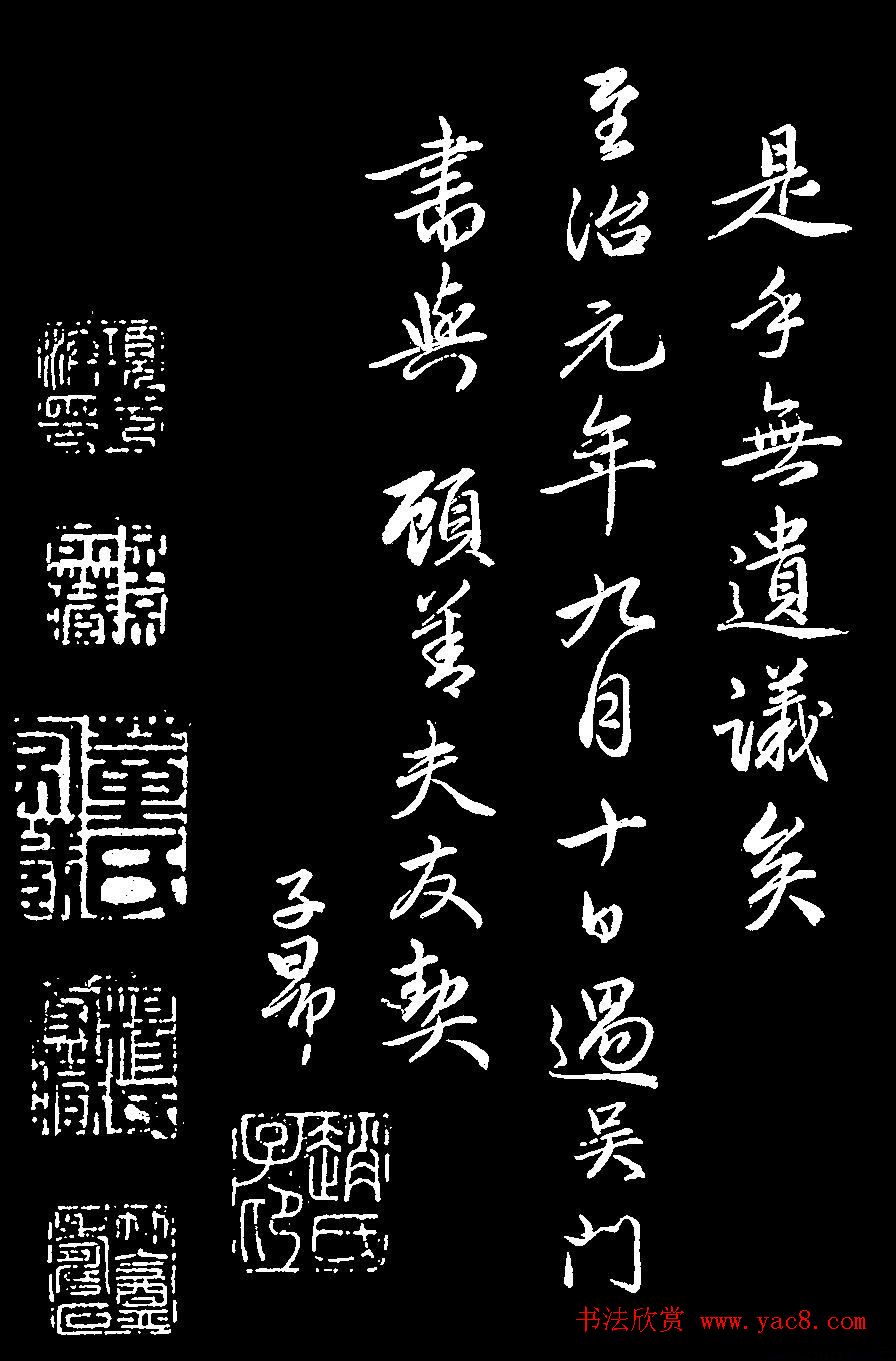 是乎無遺議矣
至治元年九月十日過吳門
書與 顧善夫友契
子昻
趙氏子印
書法欣赏 www.yac8.com